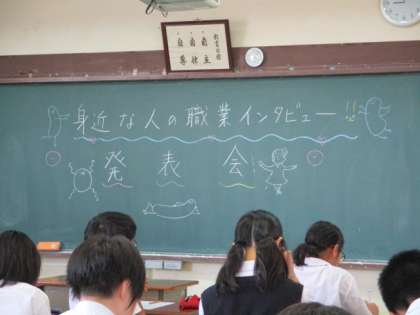 身近な人の職業インタビュー!!
発表会